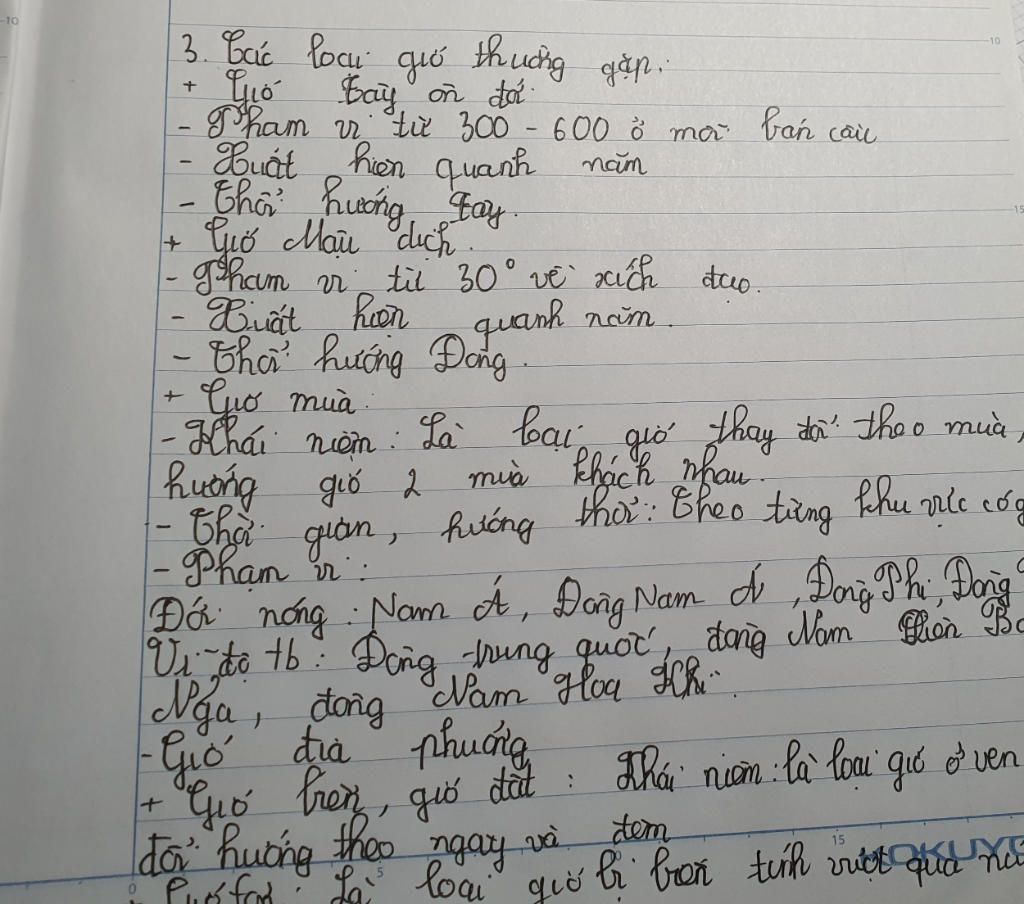 3. Các loại gió thường gặp.
+ Gió Tây ôn đới
- Phạm vi từ 300 - 600 ở mỗi bán cầu
- Xuất hiện quanh năm
- Thổi hướng Tây.
+ Gió Mậu dịch.
- Phạm vi từ 30° về xích đạo.
- Xuất hiện quanh năm.
- Thổi hướng Đông.
+ Gió mùa.
- Khái niệm: Là loại gió thay đổi theo mùa,
hướng gió 2 mùa khách nhau.
- Thời gian, hướng thổi: Theo từng khu vực có g
- Phạm vi:
Đới nóng: Nam Á, Đông Nam Á, Đông Phi, Đông
Vĩ độ tb: Đông trung quốc, đông Nam
Nga, đông Nam Hoa Kì.
- Gió địa phương
+ Gió biển, gió đất: Khái niệm: là loại gió ở ven
đổi hướng theo ngày và đêm
Là loại gió bị biến tính vượt qua
10
10
15
0
5
15
KOKUYO